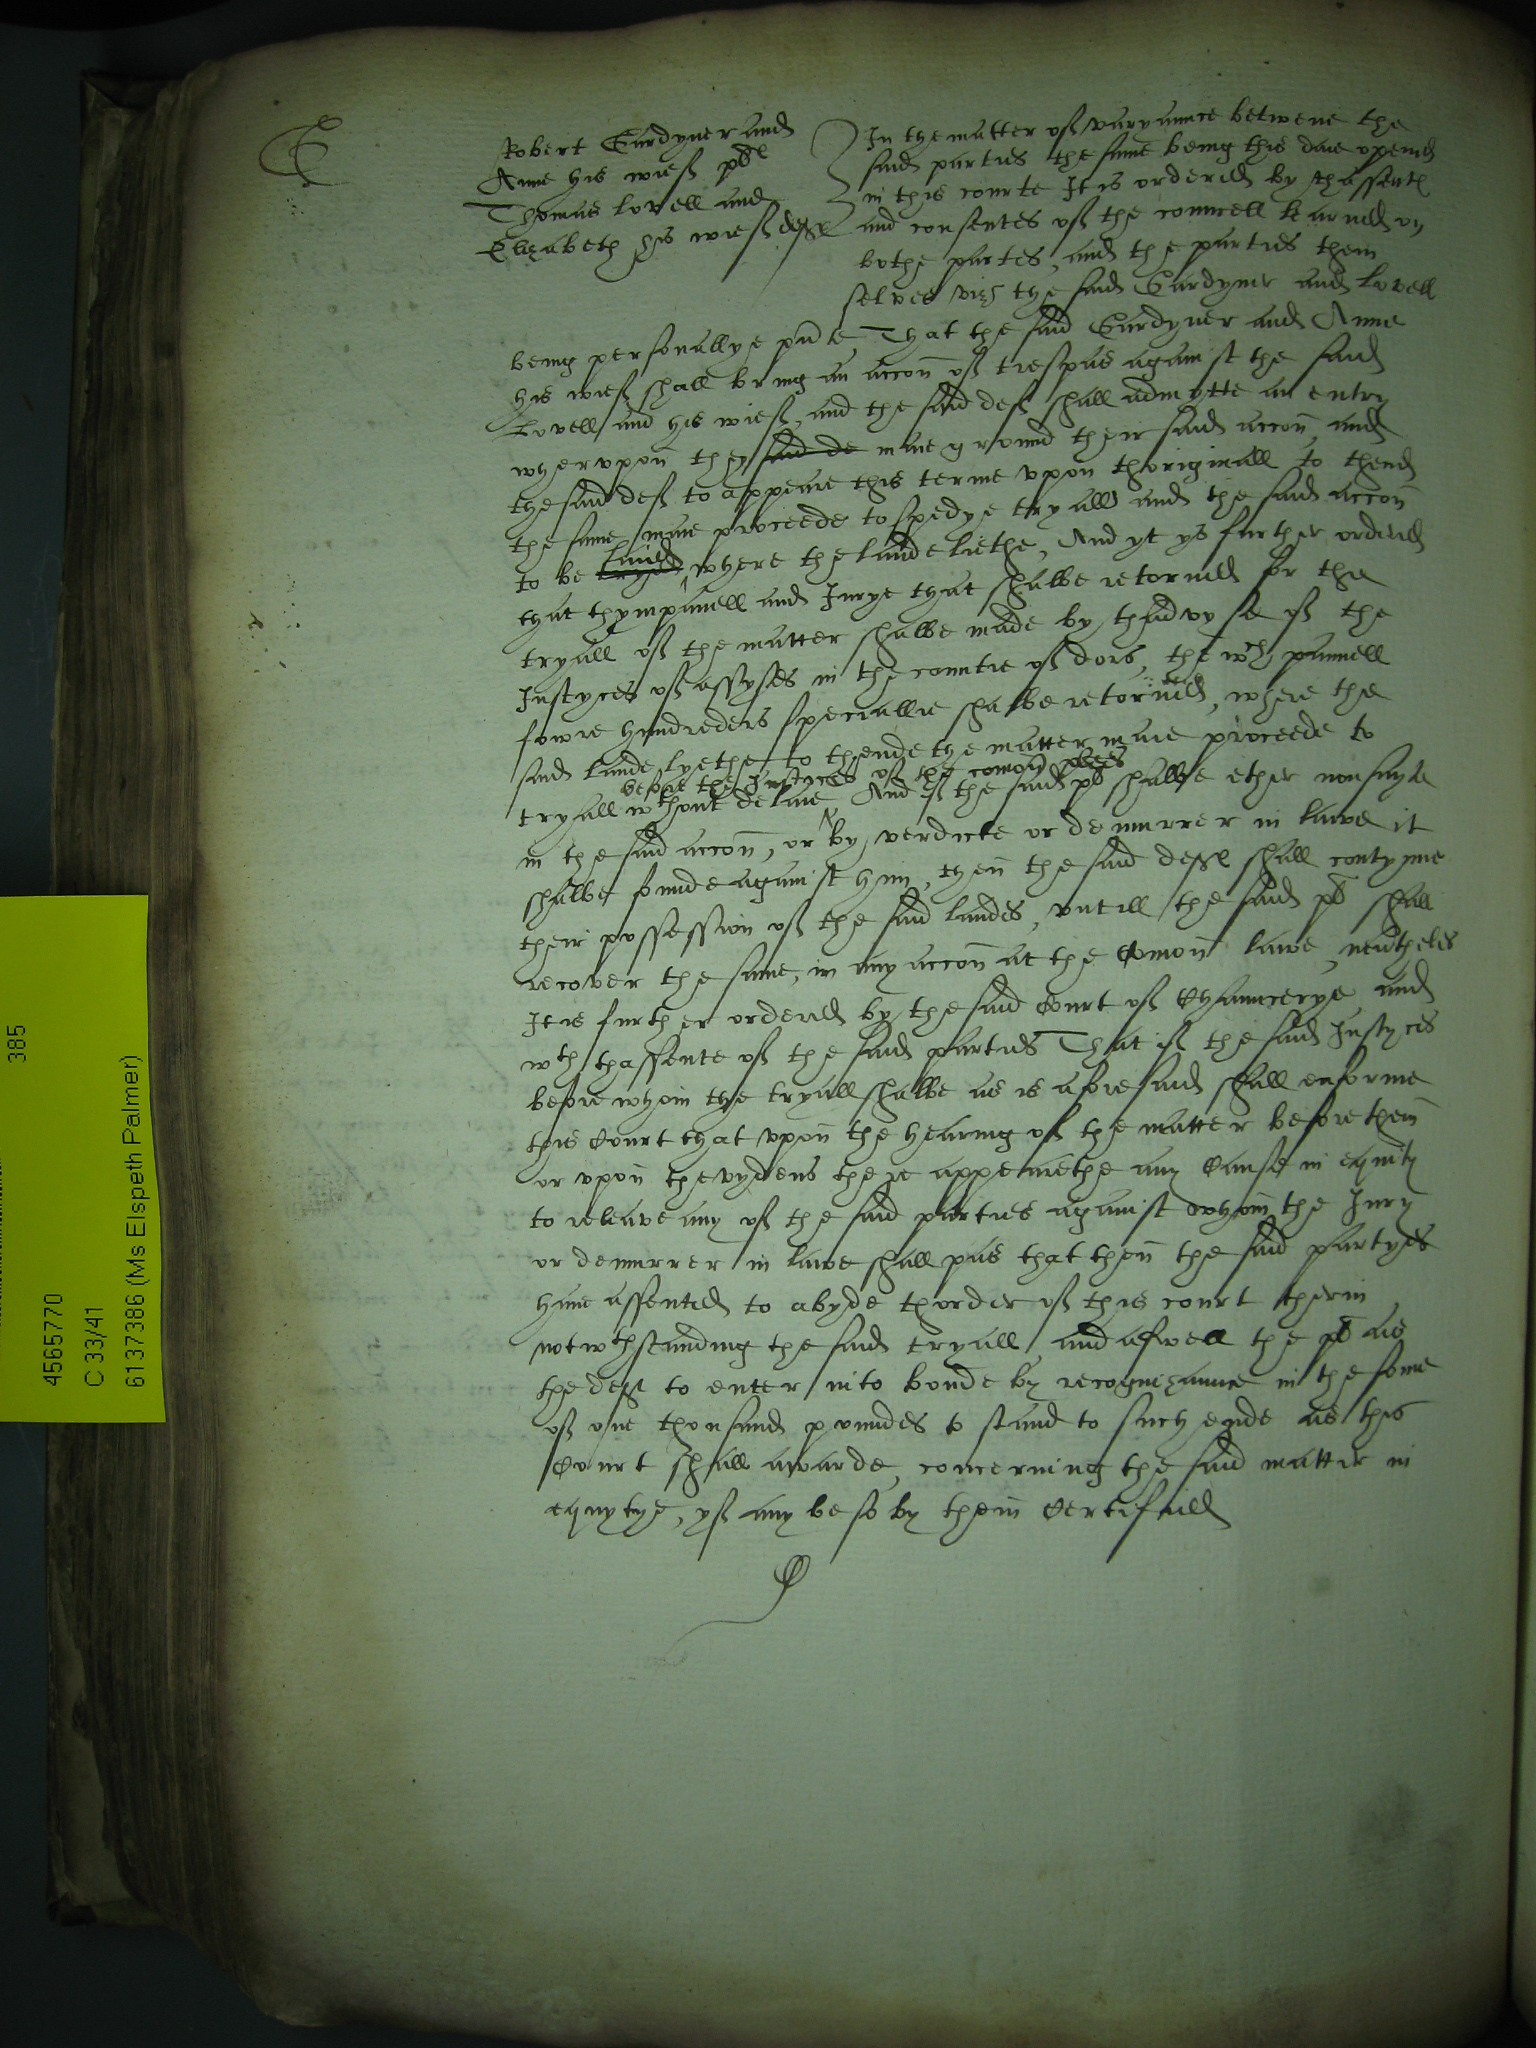 G
Robert Gardyner and
Anne his wief pl
Thomas Lovell and
Elizabeth his wief def
In the matter of varyaunce betwene the
said parties the same being this daie opened
in this courte It is ordered by thassent
and consentes of the councell learned on
bothe partes, and the parties them
selves viz the said Gardyner and Lovell
being personallye pnte That the said Gardyner and Anne
his wief shall bring an accon of trespas against the said
Lovell and his wief, and the said def shall admytte an entry
wherupon they said de maie ground their said accon and
the said def to appeare this terme upon thoriginall to thend
the same maie proceede to spedye tryall and the said accon
to be tryed laied where the lande liethe, And yt ys further ordered
that thympanell and Jurye that shalbe retorned for the
tryall of the matter shalbe made by thadvyse of the
Justyces of assyses in the countie of dors, the wch pannell
fowre hundreders speciallie shalbe retorned, where the
said lande lyethe to thende the matter maie proceede to
before the Justyces of the comon plees
tryall wthout delaie, And if the said pl shalbe ether nonsuyte
in the said accon, or by verdicte or demurrer in lawe it
shalbe founde against him, then the said def shall contynue
their possession of the said landes, untill the said pl shall
recover the same, in any accon at the Comon lawe, nevtheles
It is further ordered by the said Court of Chauncerye and
wth thassente of the said parties That if the said Justyces
before whom the tryall shalbe as is aforesaid shall enforme
this Court that upon the hearing of the matter before them
or upon thevydens there appearethe any Cause in equity
to releave any of the said parties against whom the Jury
or demurrer in lawe shall pas that then the said partyes
have assented to abyde thorder of this court therin
notwthstanding the said tryall, and aswell the pl as
the def to enter into bonde by recognizaunce in the some
of one thousand poundes to stand to such ende as this
Court shall awarde, concerning the said matter in
equytye, yf any be so by them Certified
385
4565770
C 33/41
6137386 (Ms Elspeth Palmer)